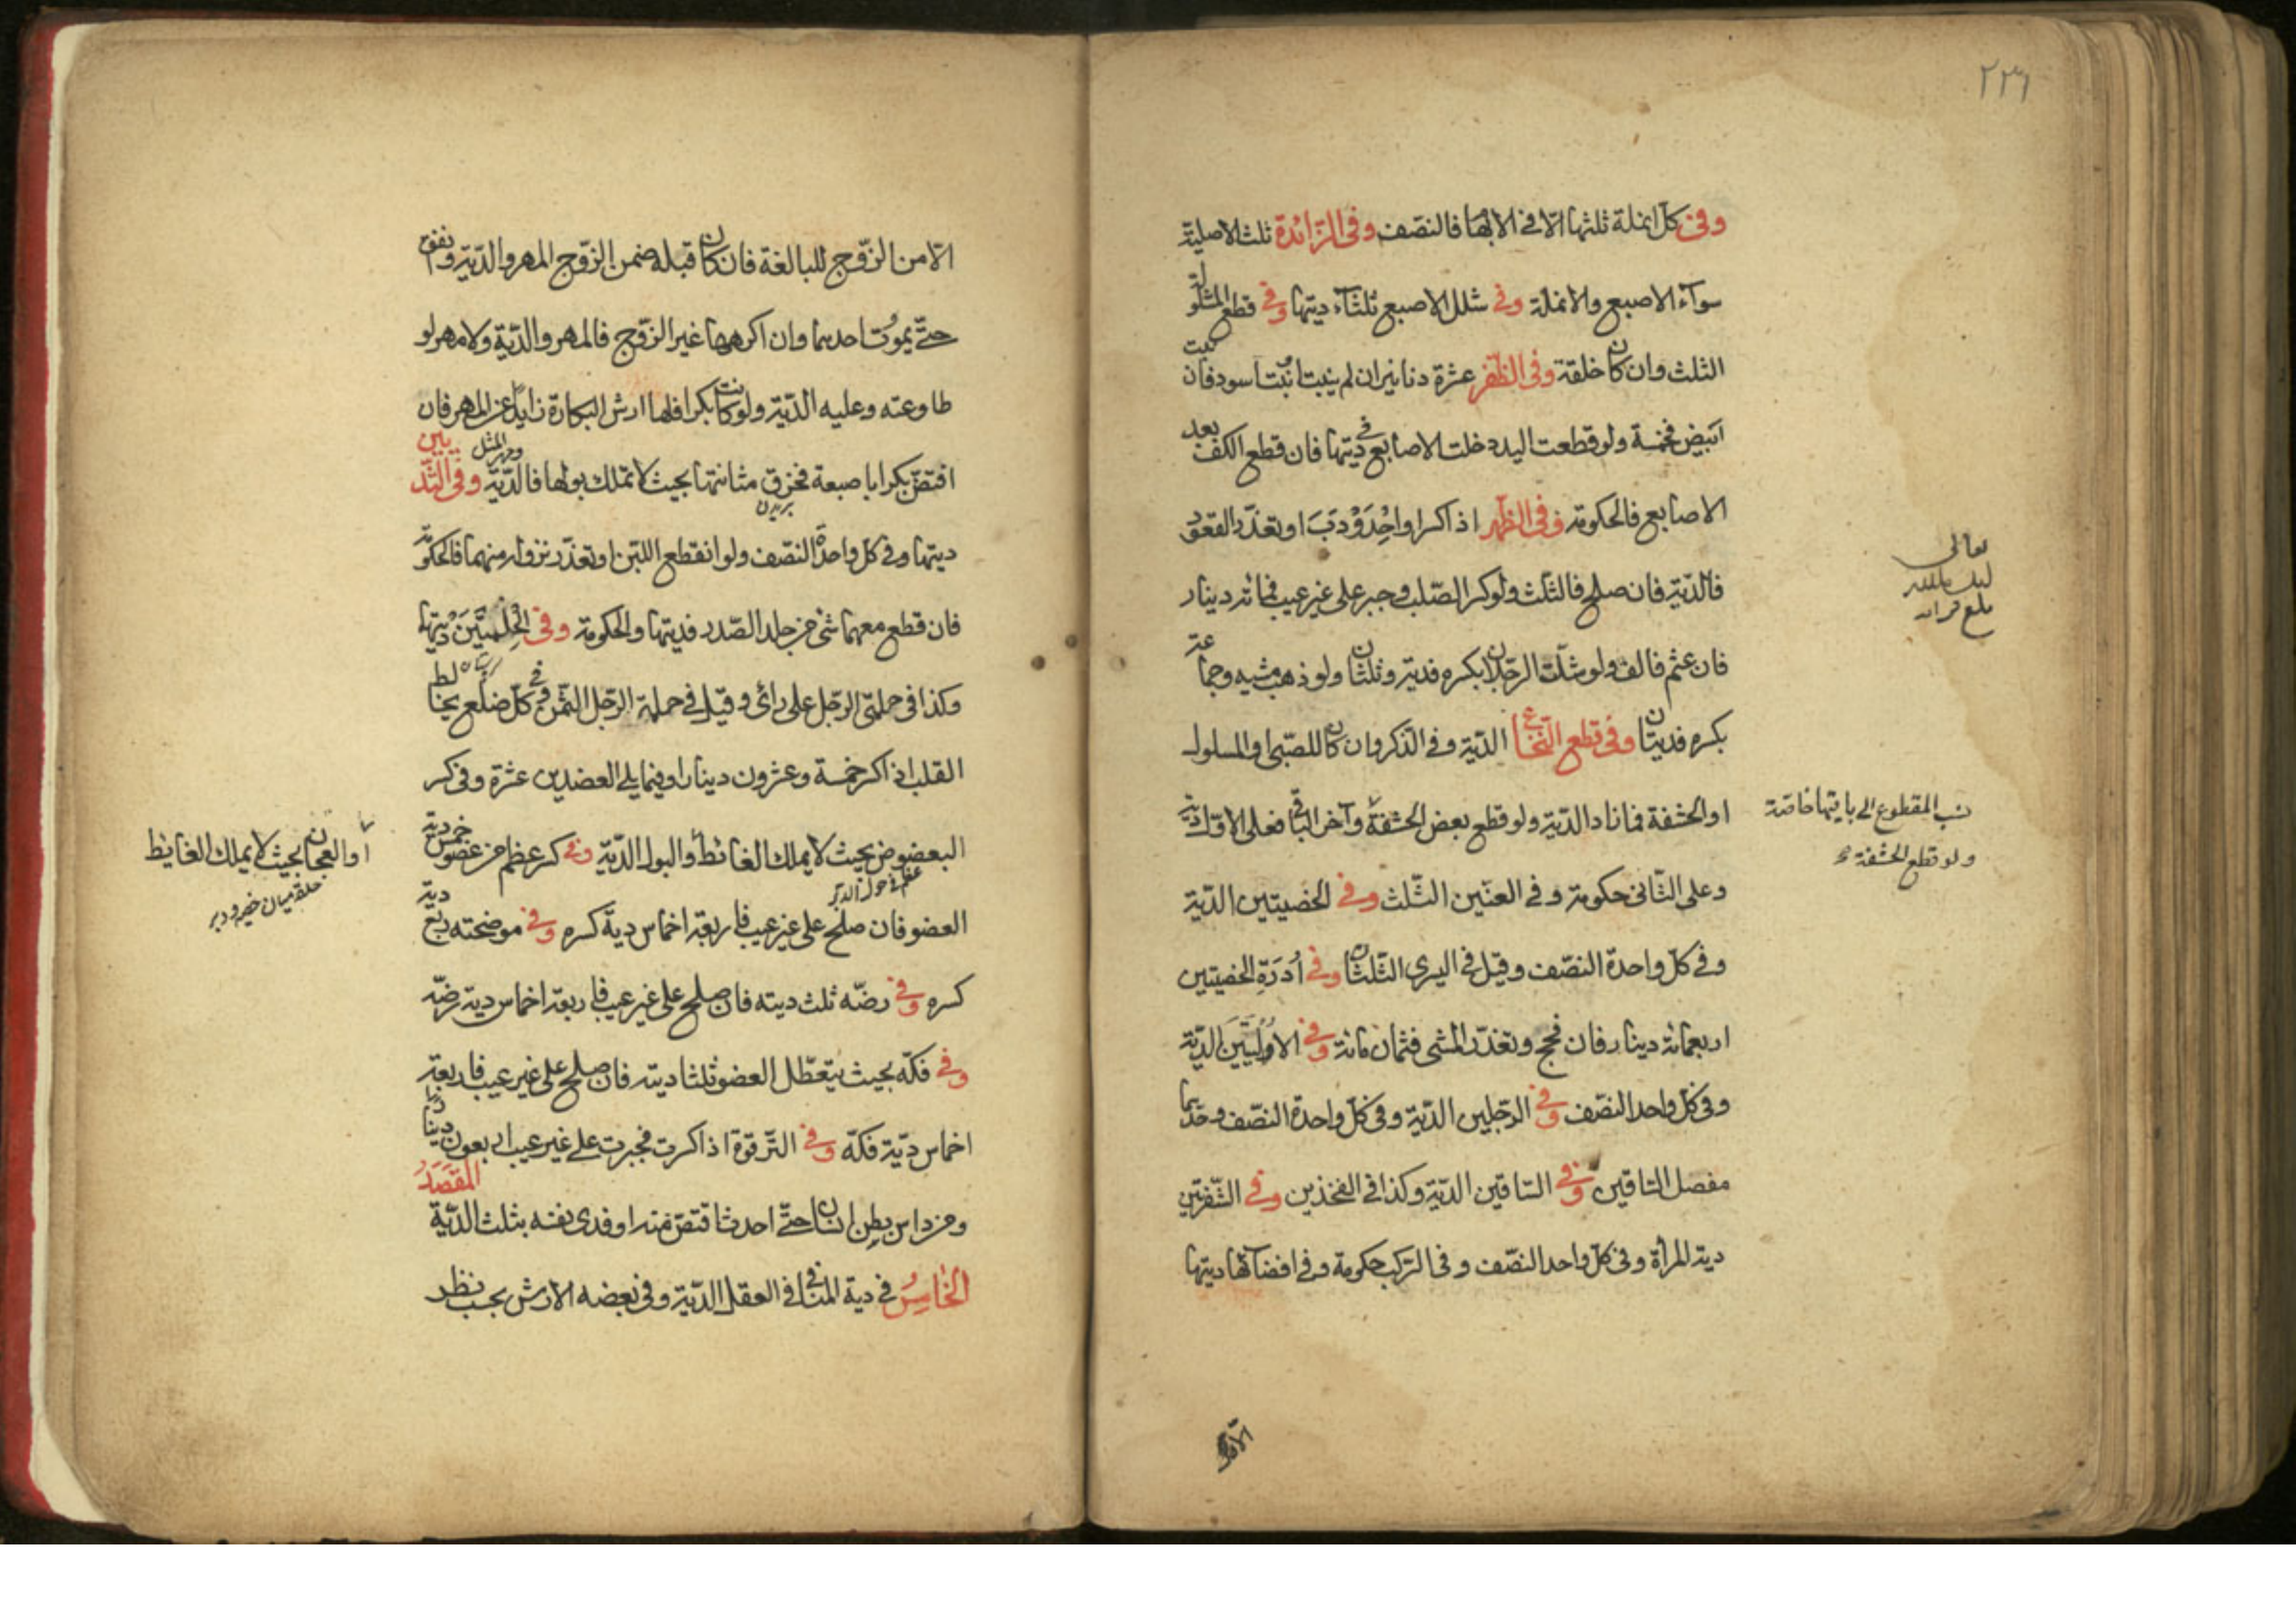 ٢٣٦
وفي كل انملة ثلثها الا في الابهام فالنصف وفي الزائدة ثلث الاصلية
سواء الاصبع والانملة وفي شلل الاصبع ثلثاء ديتها وفي قطع المشلولة
الثلث وان كان خلقة وفي الظفر عشرة دنانير ان لم ينبت او نبت اسود فان نبت
ابيض فخمسة ولو قطعت اليد دخلت الاصابع في ديتها فان قطع الكف بعد
الاصابع فالحكومة وفي الظهر اذا كسر او احدودب او تعذر القعود
فالدية فان صلح فالثلث ولو كسر الصلب وجبر على غير عيب فمائة دينار
فان عثم فالف ولو شلت الرجلان بكسره فدية وثلثان ولو ذهب مشيه وجماعه
بكسره فديتان وفي قطع النخاع الدية وفي الذكر وان كان للصبي او المسلول
او الحشفة فما زاد الدية ولو قطع بعض الحشفة وآخر الباقي فعلى الاول دية
نسب المقطوع الى باقيها خاصة
ولو قطع الحشفة
وعلى الثاني حكومة وفي العنين الثلث وفي الخصيتين الدية
وفي كل واحدة النصف وقيل في اليسرى الثلثان وفي أدرة الخصيتين
اربعمائة دينار فان فحج وتعذر المشي فثمان مائة وفي الاوليين الدية
وفي كل واحد النصف وفي الرجلين الدية وفي كل واحدة النصف وحدهما
مفصل الساقين وفي الساقين الدية وكذا في الفخذين وفي الشفرتين
دية المرأة وفي كل واحد النصف وفي الركب حكومة وفي افضائها ديتها
تعالى
بلغ قرائه
الا من
الا من الزوج للبالغة فان كان قبله ضمن الزوج المهر والدية وانفق
حتى يموت احدهما وان اكرهها غير الزوج فالمهر والدية ولا مهر لو
طاوعته وعليه الدية ولو كانت بكرا فلها ارش البكارة زايدا عن المهر فان
افتض بكرا باصبعة فخرق مثانتها بحيث لا تملك بولها فالدية ومهر المثل وفي الثديين
بريدن
ديتها وفي كل واحدة النصف ولو انقطع اللبن او تعذر نزوله منهما فالحكومة
فان قطع معهما شئ من جلد الصدر فديتها والحكومة وفي الحلمتين ديتها
وكذا في حلمتي الرجل على رأي وقيل في حلمة الرجل الثمن وفي كل ضلع يخالط
القلب اذا كسر خمسة وعشرون دينارا وفيما يلي العضدين عشرة وفي كسر
البعضوض بحيث لا يملك الغائط او البول الدية وفي كسر عظم من عضو خمس دية
أو العجان بحيث لا يملك الغايط
حلقه ميان خصيه و دبر
عظم حول الدبر
العضو فان صلح على غير عيب فاربعة اخماس دية كسره وفي موضحته ربع دية
كسره وفي رضه ثلث ديته فان صلح على غير عيب فاربعة اخماس دية رضه
وفي فكه بحيث يتعطل العضو ثلثا ديته فان صلح على غير عيب فاربعة
اخماس دية فكه وفي الترقوة اذا كسرت فجبرت على غير عيب اربعون دينارا
ومن داس بطن انسان حتى احدث اقتص منه او فدى نفسه بثلث الدية المقصد
الخامس في دية المنافع في العقل الدية وفي بعضه الارش بحسب نظر